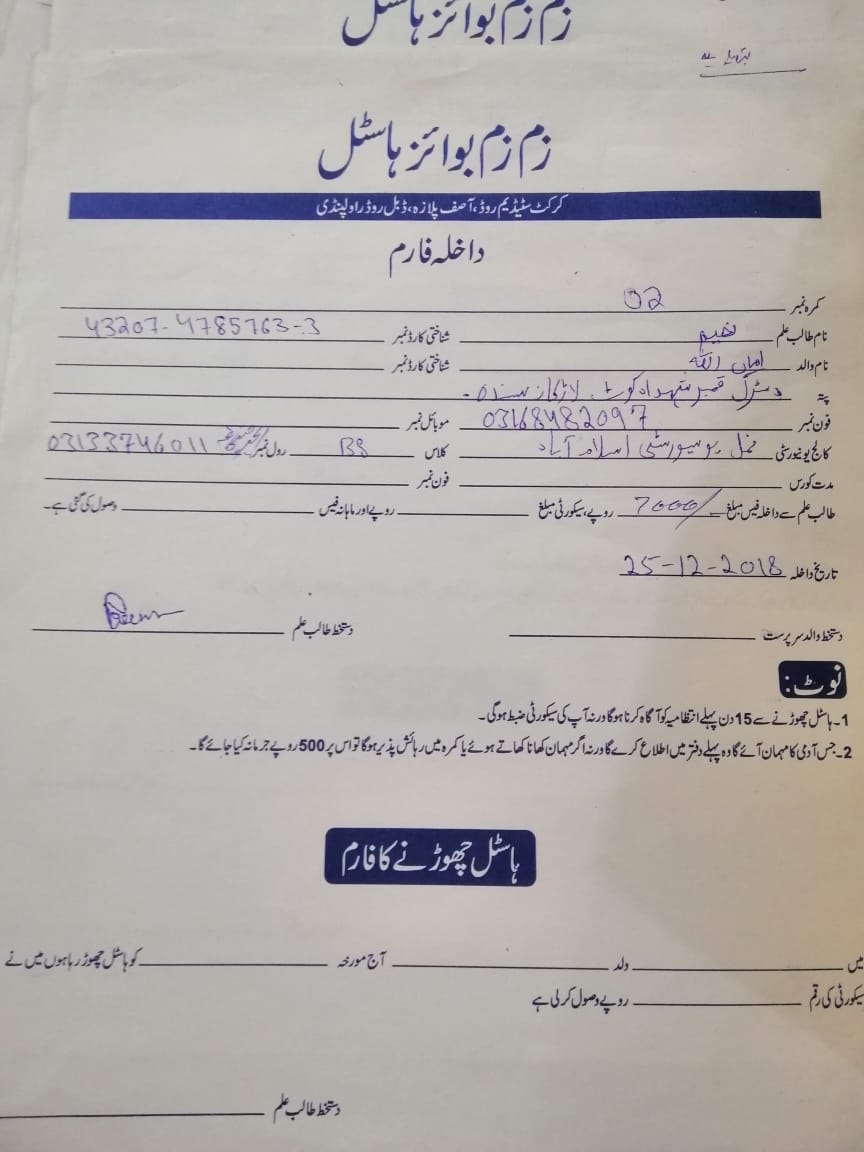 زم زم بوائز ہاسٹل
زم زم بوائز ہاسٹل
کرکٹ سٹیڈیم روڈ، آصف پلازہ، ڈبل روڈ راولپنڈی
داخلہ فارم
کمرہ نمبر 02
نام طالب علم شناختی کارڈ نمبر 43207-4785763-3
نام والد امان اللہ شناختی کارڈ نمبر
پتہ ڈسٹرکٹ قمبر شہدادکوٹ لاڑکانہ سندھ۔
فون نمبر 03168482097 موبائل نمبر
کالج یونیورسٹی نمل یونیورسٹی اسلام آباد کلاس BS رول نمبر 03133746011
مدت کورس فون نمبر
طالب علم سے داخلہ فیس مبلغ 7000/ روپے، سیکورٹی مبلغ روپے اور ماہانہ فیس وصول کی گئی ہے۔
تاریخ داخلہ 25-12-2018
دستخط والد سرپرست دستخط طالب علم
نوٹ:
1۔ ہاسٹل چھوڑنے سے 15 دن پہلے انتظامیہ کو آگاہ کرنا ہوگا ورنہ آپ کی سیکورٹی ضبط ہوگی۔
2۔ جس آدمی کا مہمان آئے گا وہ پہلے دفتر میں اطلاع کرے گا ورنہ اگر مہمان کھانا کھاتے ہوئے یا کمرہ میں رہائش پذیر ہوگا تو اس پر 500 روپے جرمانہ کیا جائے گا۔
ہاسٹل چھوڑنے کا فارم
میں ولد آج مورخہ کو ہاسٹل چھوڑ رہا ہوں میں نے
سیکورٹی کی رقم روپے وصول کر لی ہے
دستخط طالب علم